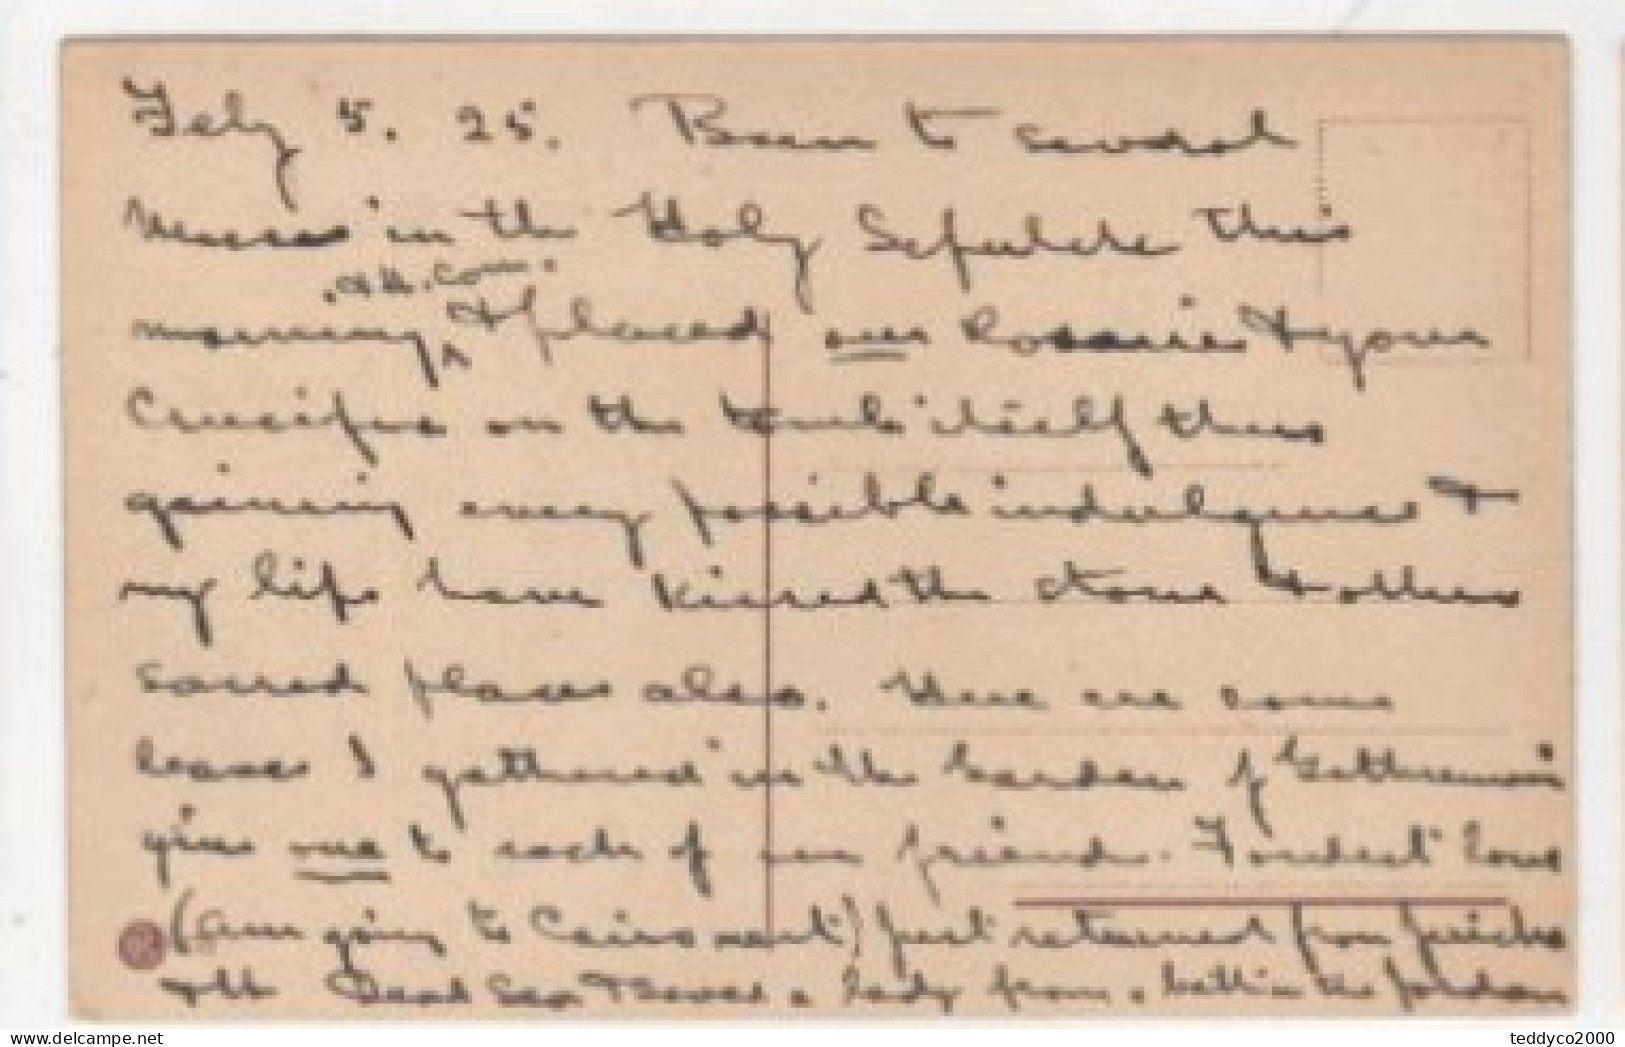 Feby 5. 25. Been to several
Masses in the Holy Sepulchre this
& H. Com.
morning & placed our Rosaries & your
Crucifix on the tomb itself thus
gaining every possible indulgence &
my lips have kissed the stone & other
sacred places also. Here are some
leaves I gathered in the Garden of Gethsemani
give one to each of our friends. Fondest love
(am going to Cairo next) just returned from Jericho
& the Dead Sea & saved a lady from a bath in the Jordan
teddyco2000